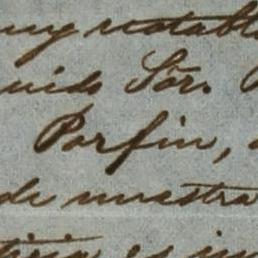 muy notabl
uido Sor.
Porfin,
de nuestra
es